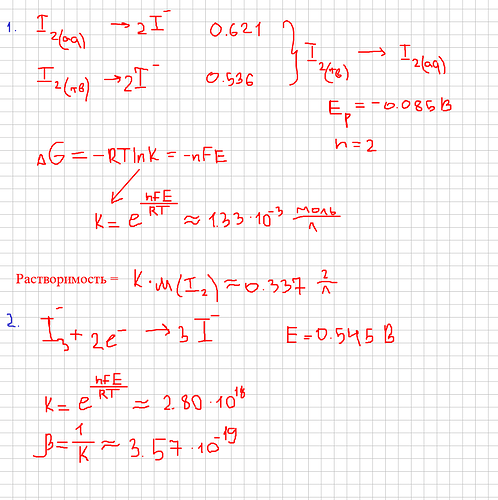 1. I₂(aq) → 2I⁻ 0.621
I₂(тв) → 2I⁻ 0.536
I₂(тв) → I₂(aq)
E_p = -0.085 В
n = 2
ΔG = -RTlnK = -nFE
K = e^(nFE/RT) ≈ 1.33·10⁻³ моль/л
Растворимость = K·M(I₂) ≈ 0.337 г/л
2. I₃⁻ + 2e⁻ → 3I⁻ E = 0.545 В
K = e^(nFE/RT) ≈ 2.80·10¹⁸
β = 1/K ≈ 3.57·10⁻¹⁹